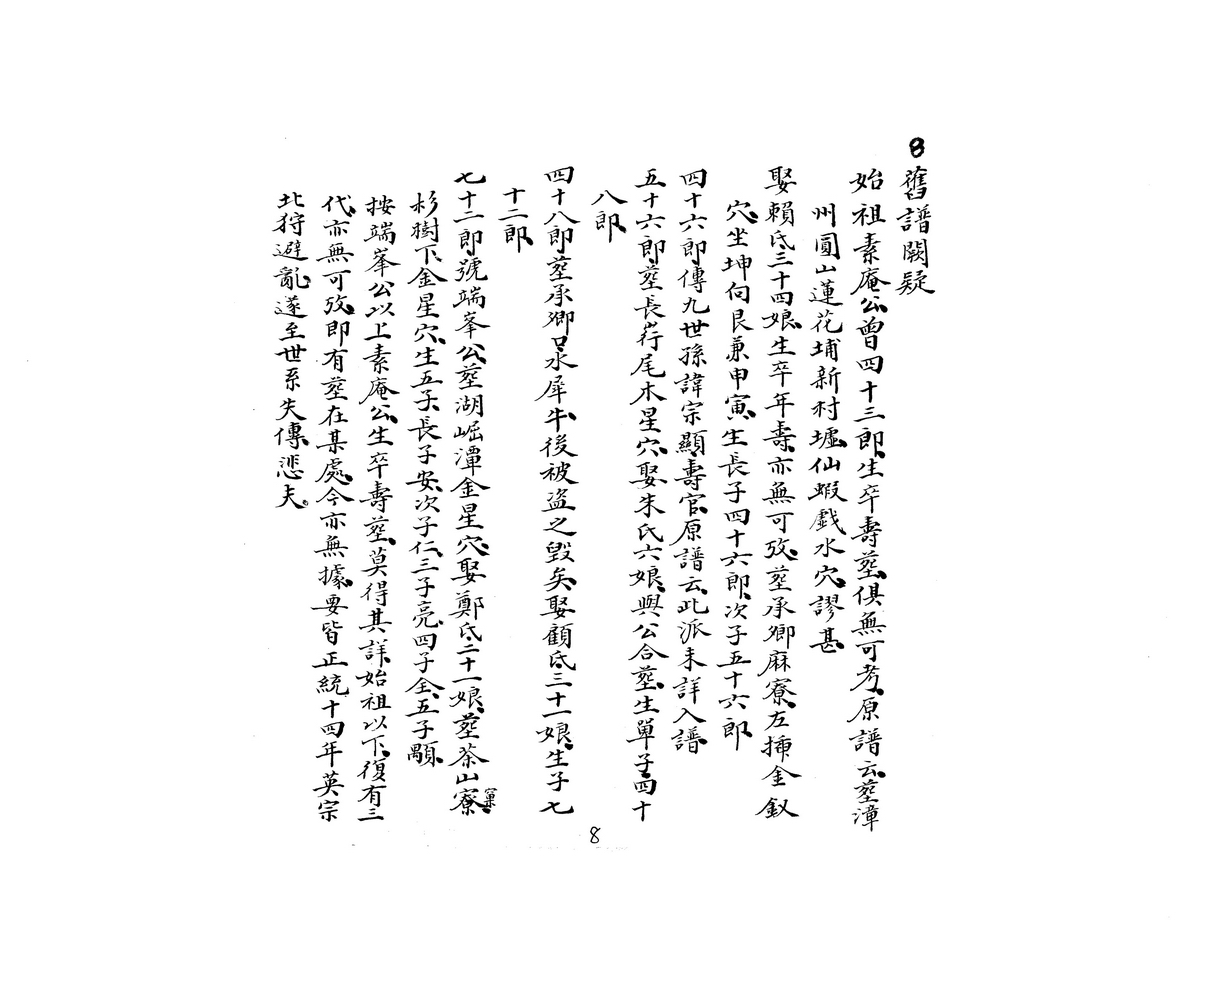 8
舊譜闕疑
始祖素庵公曾四十三郎生卒壽塟俱無可考原譜云塟漳
州圓山蓮花埔新村墟仙蝦戲水穴謬甚
娶賴氏三十四娘生卒年壽亦無可攷塟承卿麻寮左揷金釵
穴坐坤向艮兼申寅生長子四十六郎次子五十六郎
四十六郎傳九世孫諱宗顯壽官原譜云此派未詳入譜
五十六郎塟長荇尾木星穴娶朱氏六娘與公合塟生單子四十
八郎
四十八郎塟承卿口水犀牛後被盗之毀矣娶顧氏三十一娘生子七
十二郎
七十二郎號端峯公塟湖崛潭金星穴娶鄭氏二十一娘塟茶山寮
杉樹下金星穴生五子長子安次子仁三子亮四子全五子顒
按端峯公以上素庵公生卒壽塟莫得其詳始祖以下復有三
代亦無可攷即有塟在某處今亦無據要皆正統十四年英宗
北狩避亂遂至世系失傳悲夫。
8